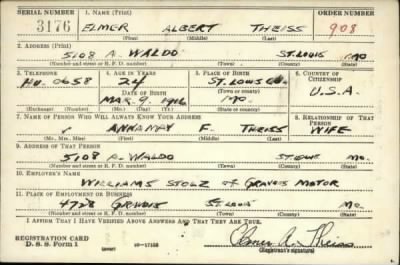 SERIAL NUMBER 1. NAME (Print) ORDER NUMBER
3176 ELMER ALBERT THEISS 908
(First) (Middle) (Last)
2. ADDRESS (Print)
5108 A. WALDO ST. LOUIS MO
(Number and street or R. F. D. number) (Town) (County) (State)
3. TELEPHONE 4. AGE IN YEARS 5. PLACE OF BIRTH 6. COUNTRY OF CITIZENSHIP
HU. 0658 24 ST. LOUIS CO.
DATE OF BIRTH (Town or county) U.S.A
MAR. 9 1916 MO.
(Exchange) (Number) (Mo.) (Day) (Yr.) (State or country)
7. NAME OF PERSON WHO WILL ALWAYS KNOW YOUR ADDRESS 8. RELATIONSHIP OF THAT PERSON
F. THEISS WIFE
(Mr., Mrs., Miss) (First) (Middle) (Last)
9. ADDRESS OF THAT PERSON
5108 A. WALDO ST LOUIS MO.
(Number and street or R. F. D. number) (Town) (County) (State)
10. EMPLOYER'S NAME
WILLIAMS STOLZ of GRAVOIS MOTOR
11. PLACE OF EMPLOYMENT OR BUSINESS
4728 GRAVOIS ST LOUIS MO.
(Number and street or R. F. D. number) (Town) (County) (State)
I AFFIRM THAT I HAVE VERIFIED ABOVE ANSWERS AND THAT THEY ARE TRUE.
REGISTRATION CARD
D. S. S. Form 1 (over) 16—17105 Elmer A. Theiss
(Registrant's signature)